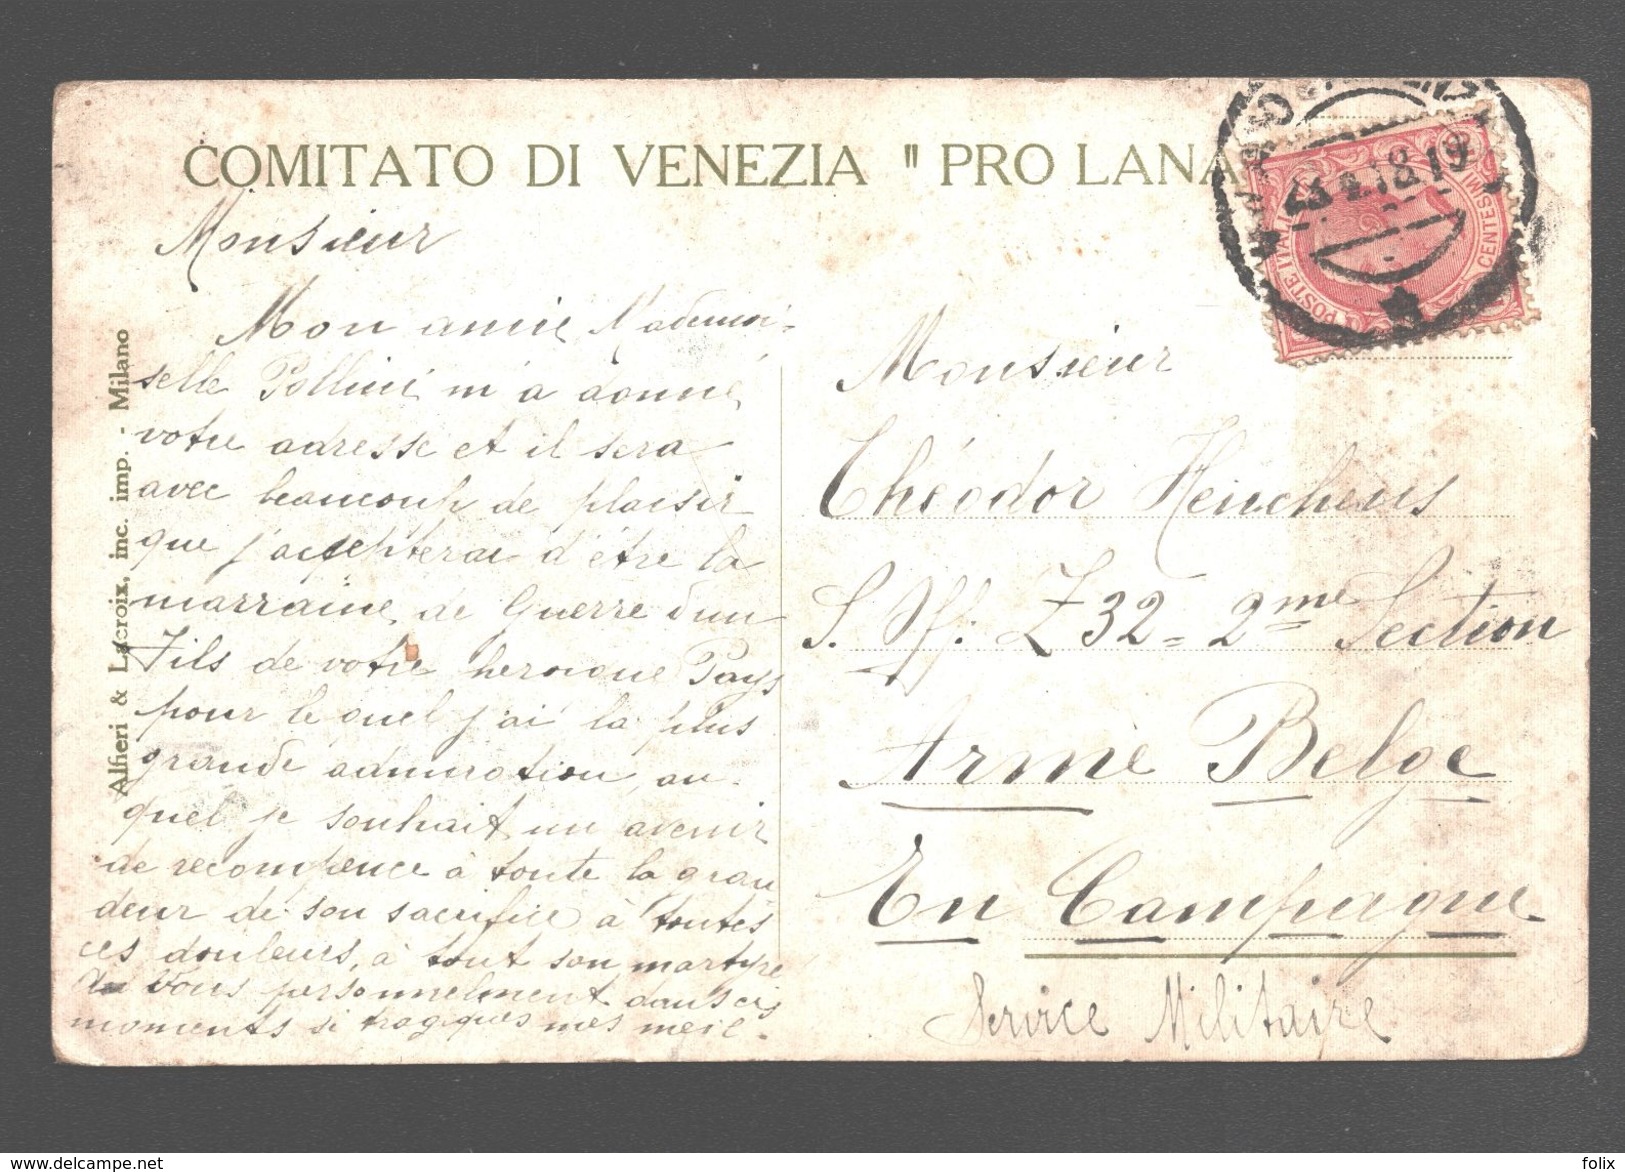 COMITATO DI VENEZIA "PRO LANA
Monsieur
Mon amie Mademoi-
selle Pollini m'a donné
votre adresse et il sera
avec beaucoup de plaisir
que j'accepterai d'être la
marraine de Guerre d'un
Fils de votre heroique Pays
pour lequel j'ai la plus
grande admiration, au-
quel je souhait un avenir
de recompence à toute la gran
deur de son sacrifice à toutes
ces douleurs, à tout son martyre
A Vous personnelment dans ces
moments si tragiques mes meil-
Alfieri & Lacroix, inc. imp. - Milano
23.2.18.19
POSTE ITALI
CENTESIMI
Monsieur
Théodor Henchens
S. Off. Z 32 = 2me Section
Armé Belge
En Campagne
Service Militaire
www.delcampe.net
felix